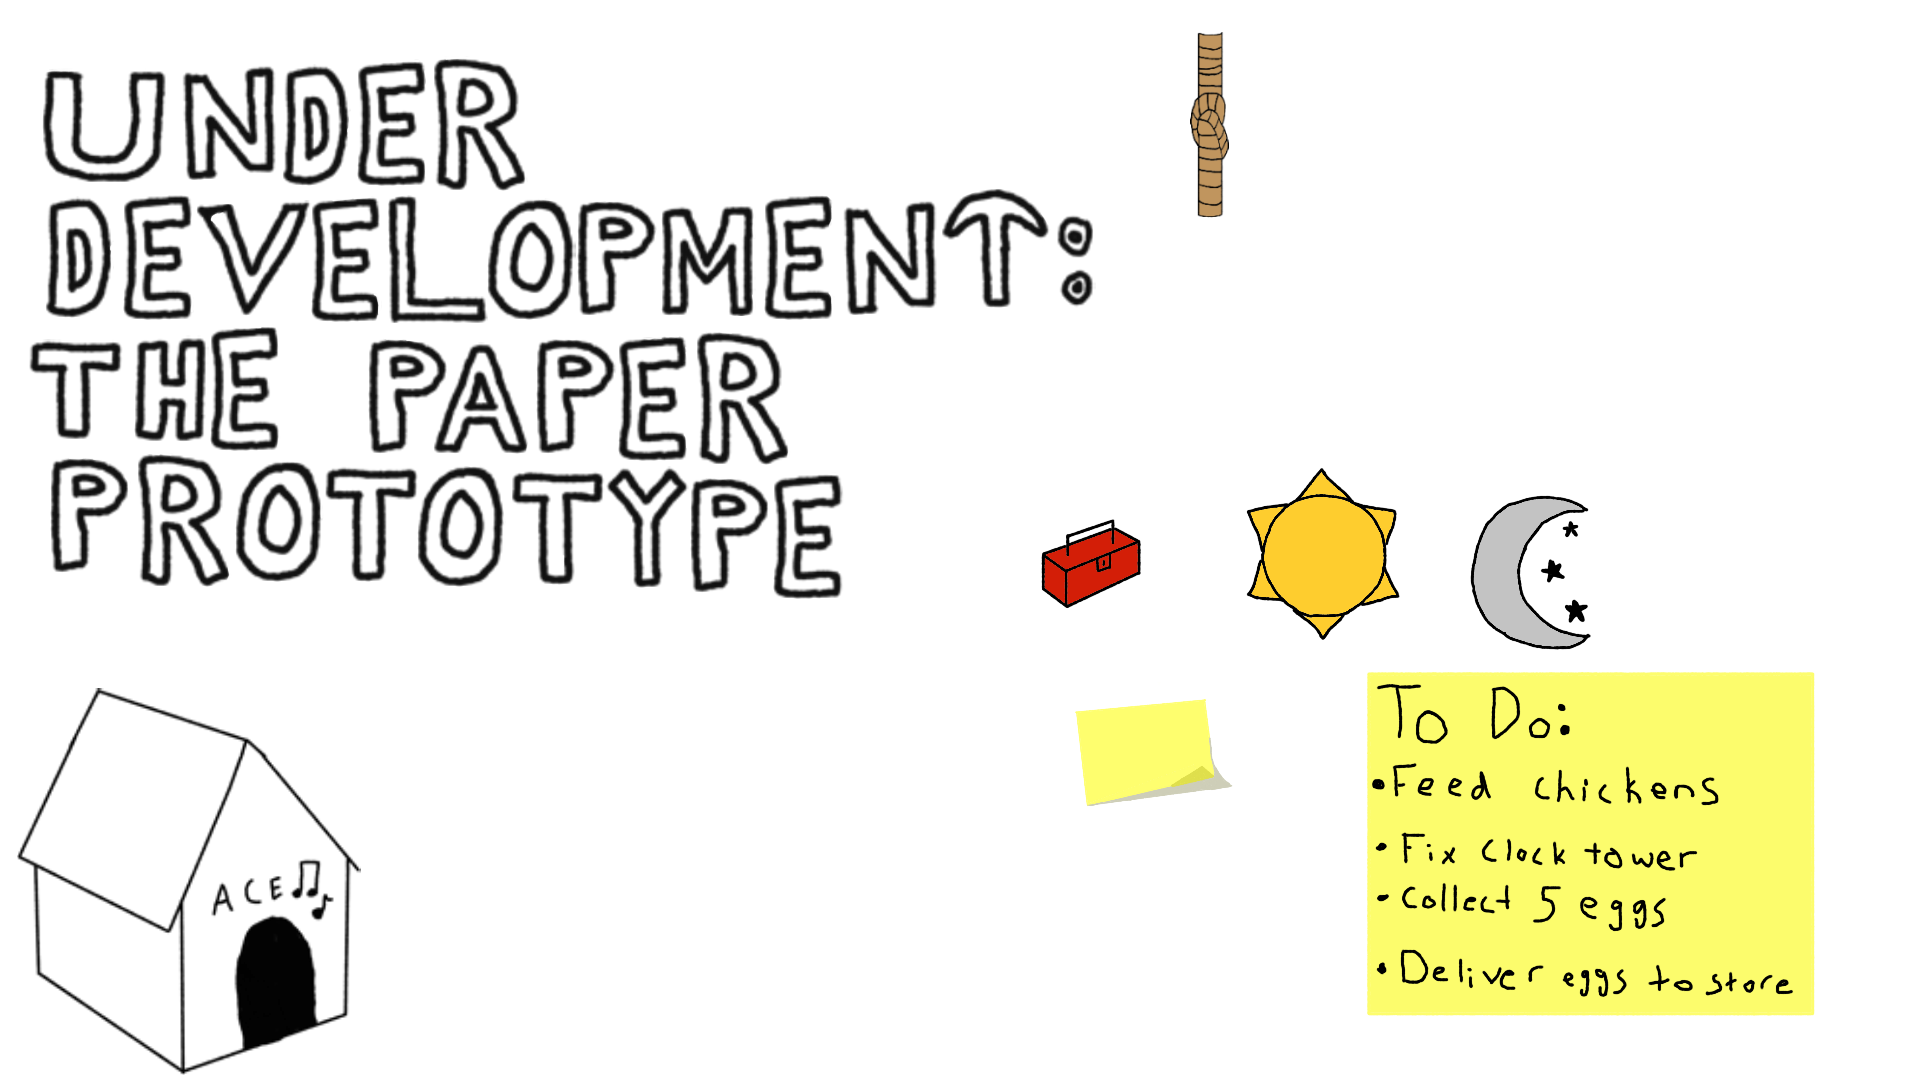 UNDER
DEVELOPMENT:
THE PAPER
PROTOTYPE
ACE
To Do:
•Feed chickens
• Fix Clock tower
• Collect 5 eggs
• Deliver eggs to store